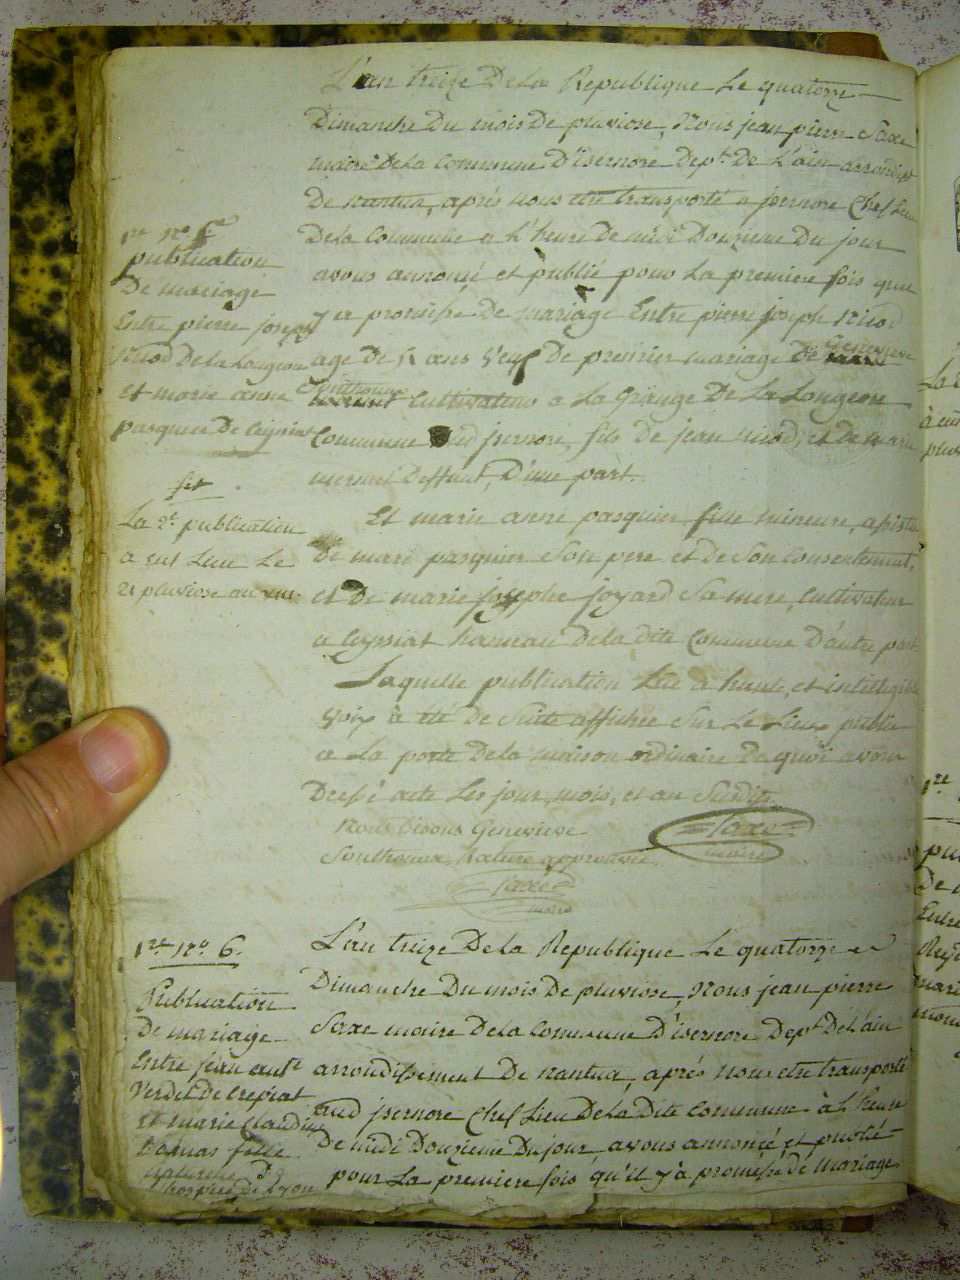 L'an treize De La Republique Le quatorze
Dimanche Du mois De pluviose, Nous jean pierre Saxe
maire De La Commune D'isernore Dept. De L'ain arrondisst
De nantua, après nous etre transporté a jsernore Chef Lieu
De la Commune a L'heure de midi Douzieme Du jour
avons annoncé et publié pour La première fois que
y a promësse de mariage Entre pierre joseph Nicod
age de ans veuf De premier mariage de Genevieve
Southonax Cultivateur a La Grange De La Longeone
Commune jsernore, fils de jean nicod, et de marie
Deffunt, D'une part.
Et marie anne pasquier fille mineure, assistée
de marc pasquier Son pere et de Son Consentement,
et De marie josephe joyard Sa mere, Cultivateur
a Ceyssiat hameau de la dite Commune D'autre part
Laquelle publication Lue a haute et intelligible
Voix à été de Suite affichée Sur Le Lieux public
a La porte de la maison ordinaire De quoi avons
Dressé acte Les jour, mois, et an Susdits
Nous Disons Genevieve
Southonax, Rature approuvée.
Saxe
maire
Saxe
maire
1re no 5
publication
De mariage
Entre pierre joseph
Nicod De la Longeone
et marie anne
pasquier De Ceyssiat
La 2e publication
a eut Lieu Le
21 pluviose an
1re No 6.
Publication
De mariage
Entre jean
Verdet De Crepiat
et marie Claudine
Damas fille
naturelle De
L'hospice De Lyon
L'an treize De La Republique Le quatorze
Dimanche Du mois De pluviose, Nous jean pierre
Saxe maire De La Commune D'isernore Dept De L'ain
arrondissement De nantua, après Nous etre transporté
aud jsernore Chef Lieu De La Dite Commune à L'heure
De midi Douzieme Du jour, avons annoncé et publié
pour La première fois qu'il y à promësse de mariage